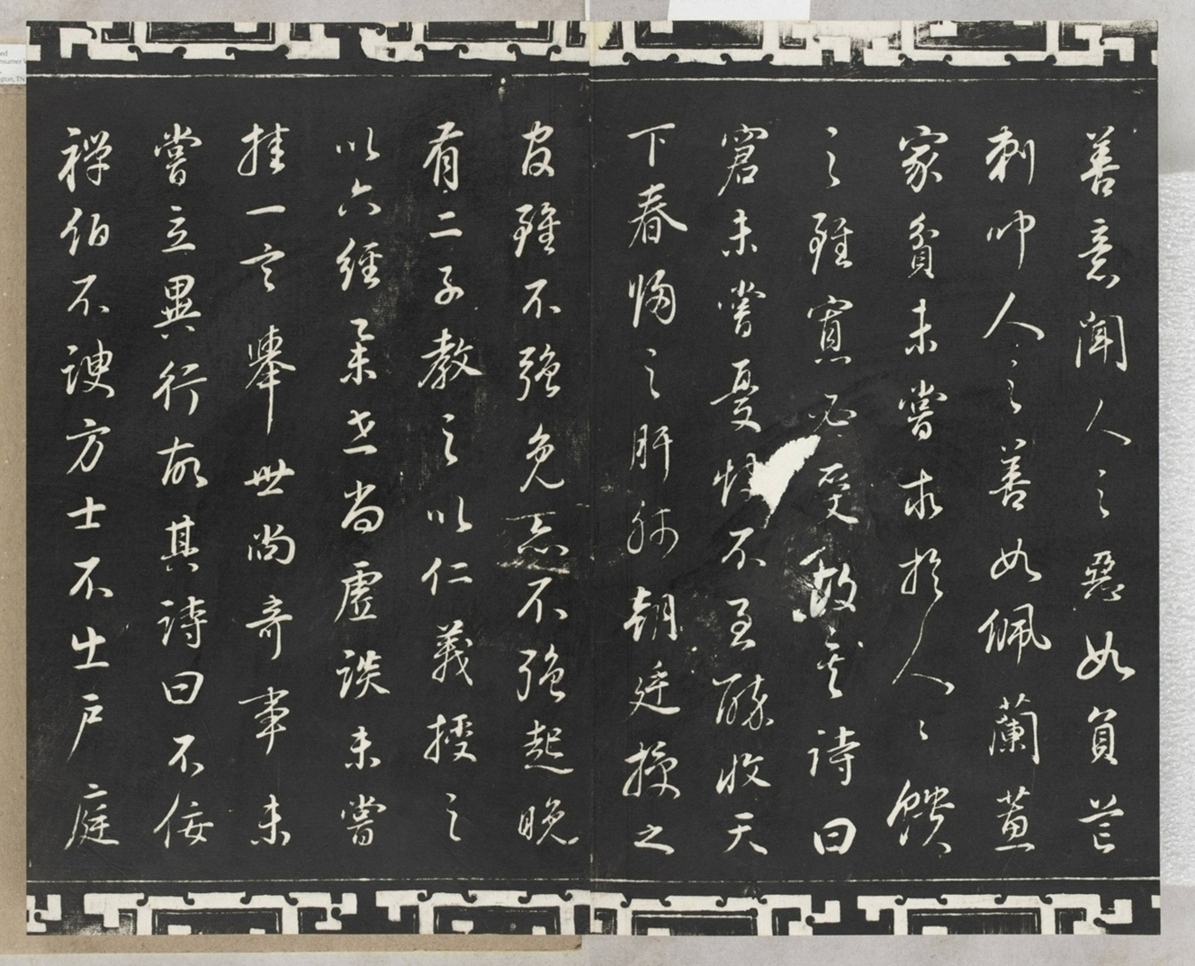 善意聞人之惡如負芒
刺聞人之善如佩蘭蕙
家貧未嘗求於人〻饋
之雖寡必受故其詩曰
窘未嘗憂不至醉收天
下春歸之肝肺朝廷授之
官雖不強免亦不強起晚
有二子教之以仁義授之
以六經舉世尚虛談未嘗
挂一言舉世尚奇事未
嘗立異行故其詩曰不佞
禪伯不諛方士不出戶庭